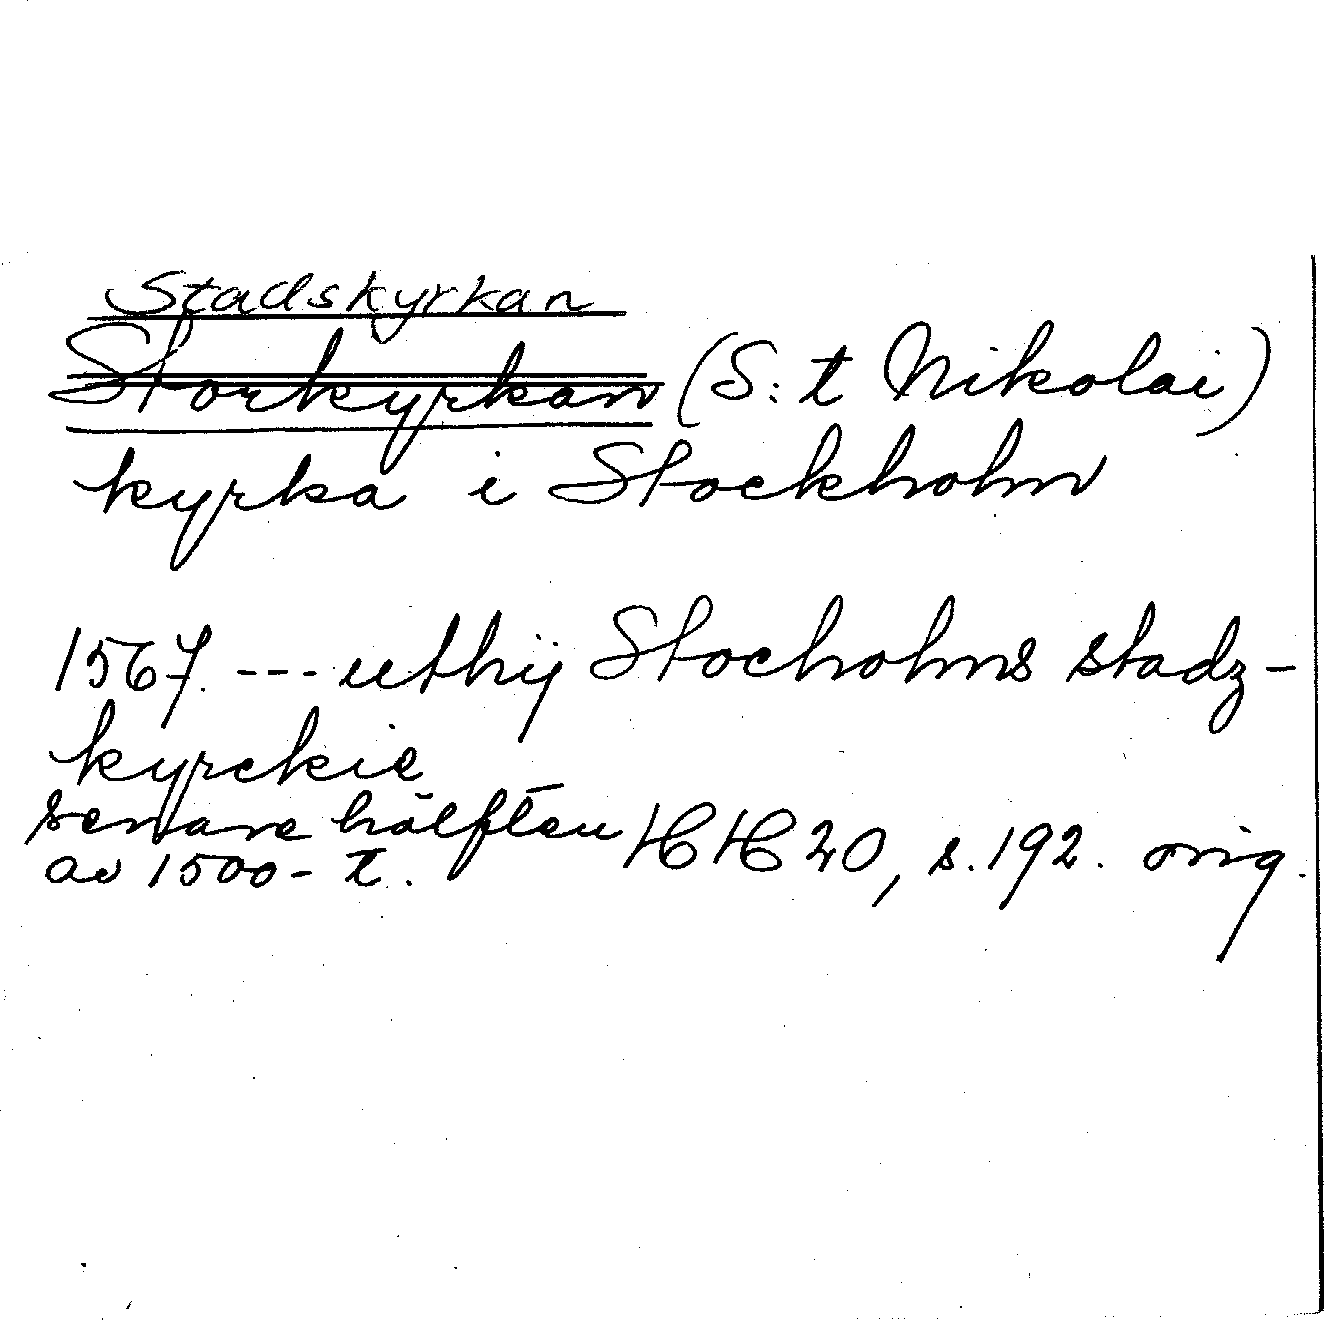 Stadskyrkan
Storkyrkan (S:t Nikolai)
kyrka i Stockholm
1567. --- uthij Stocholms stadz-
kyrckie
senare hälften HH 20, s. 192. orig.
av 1500-t.